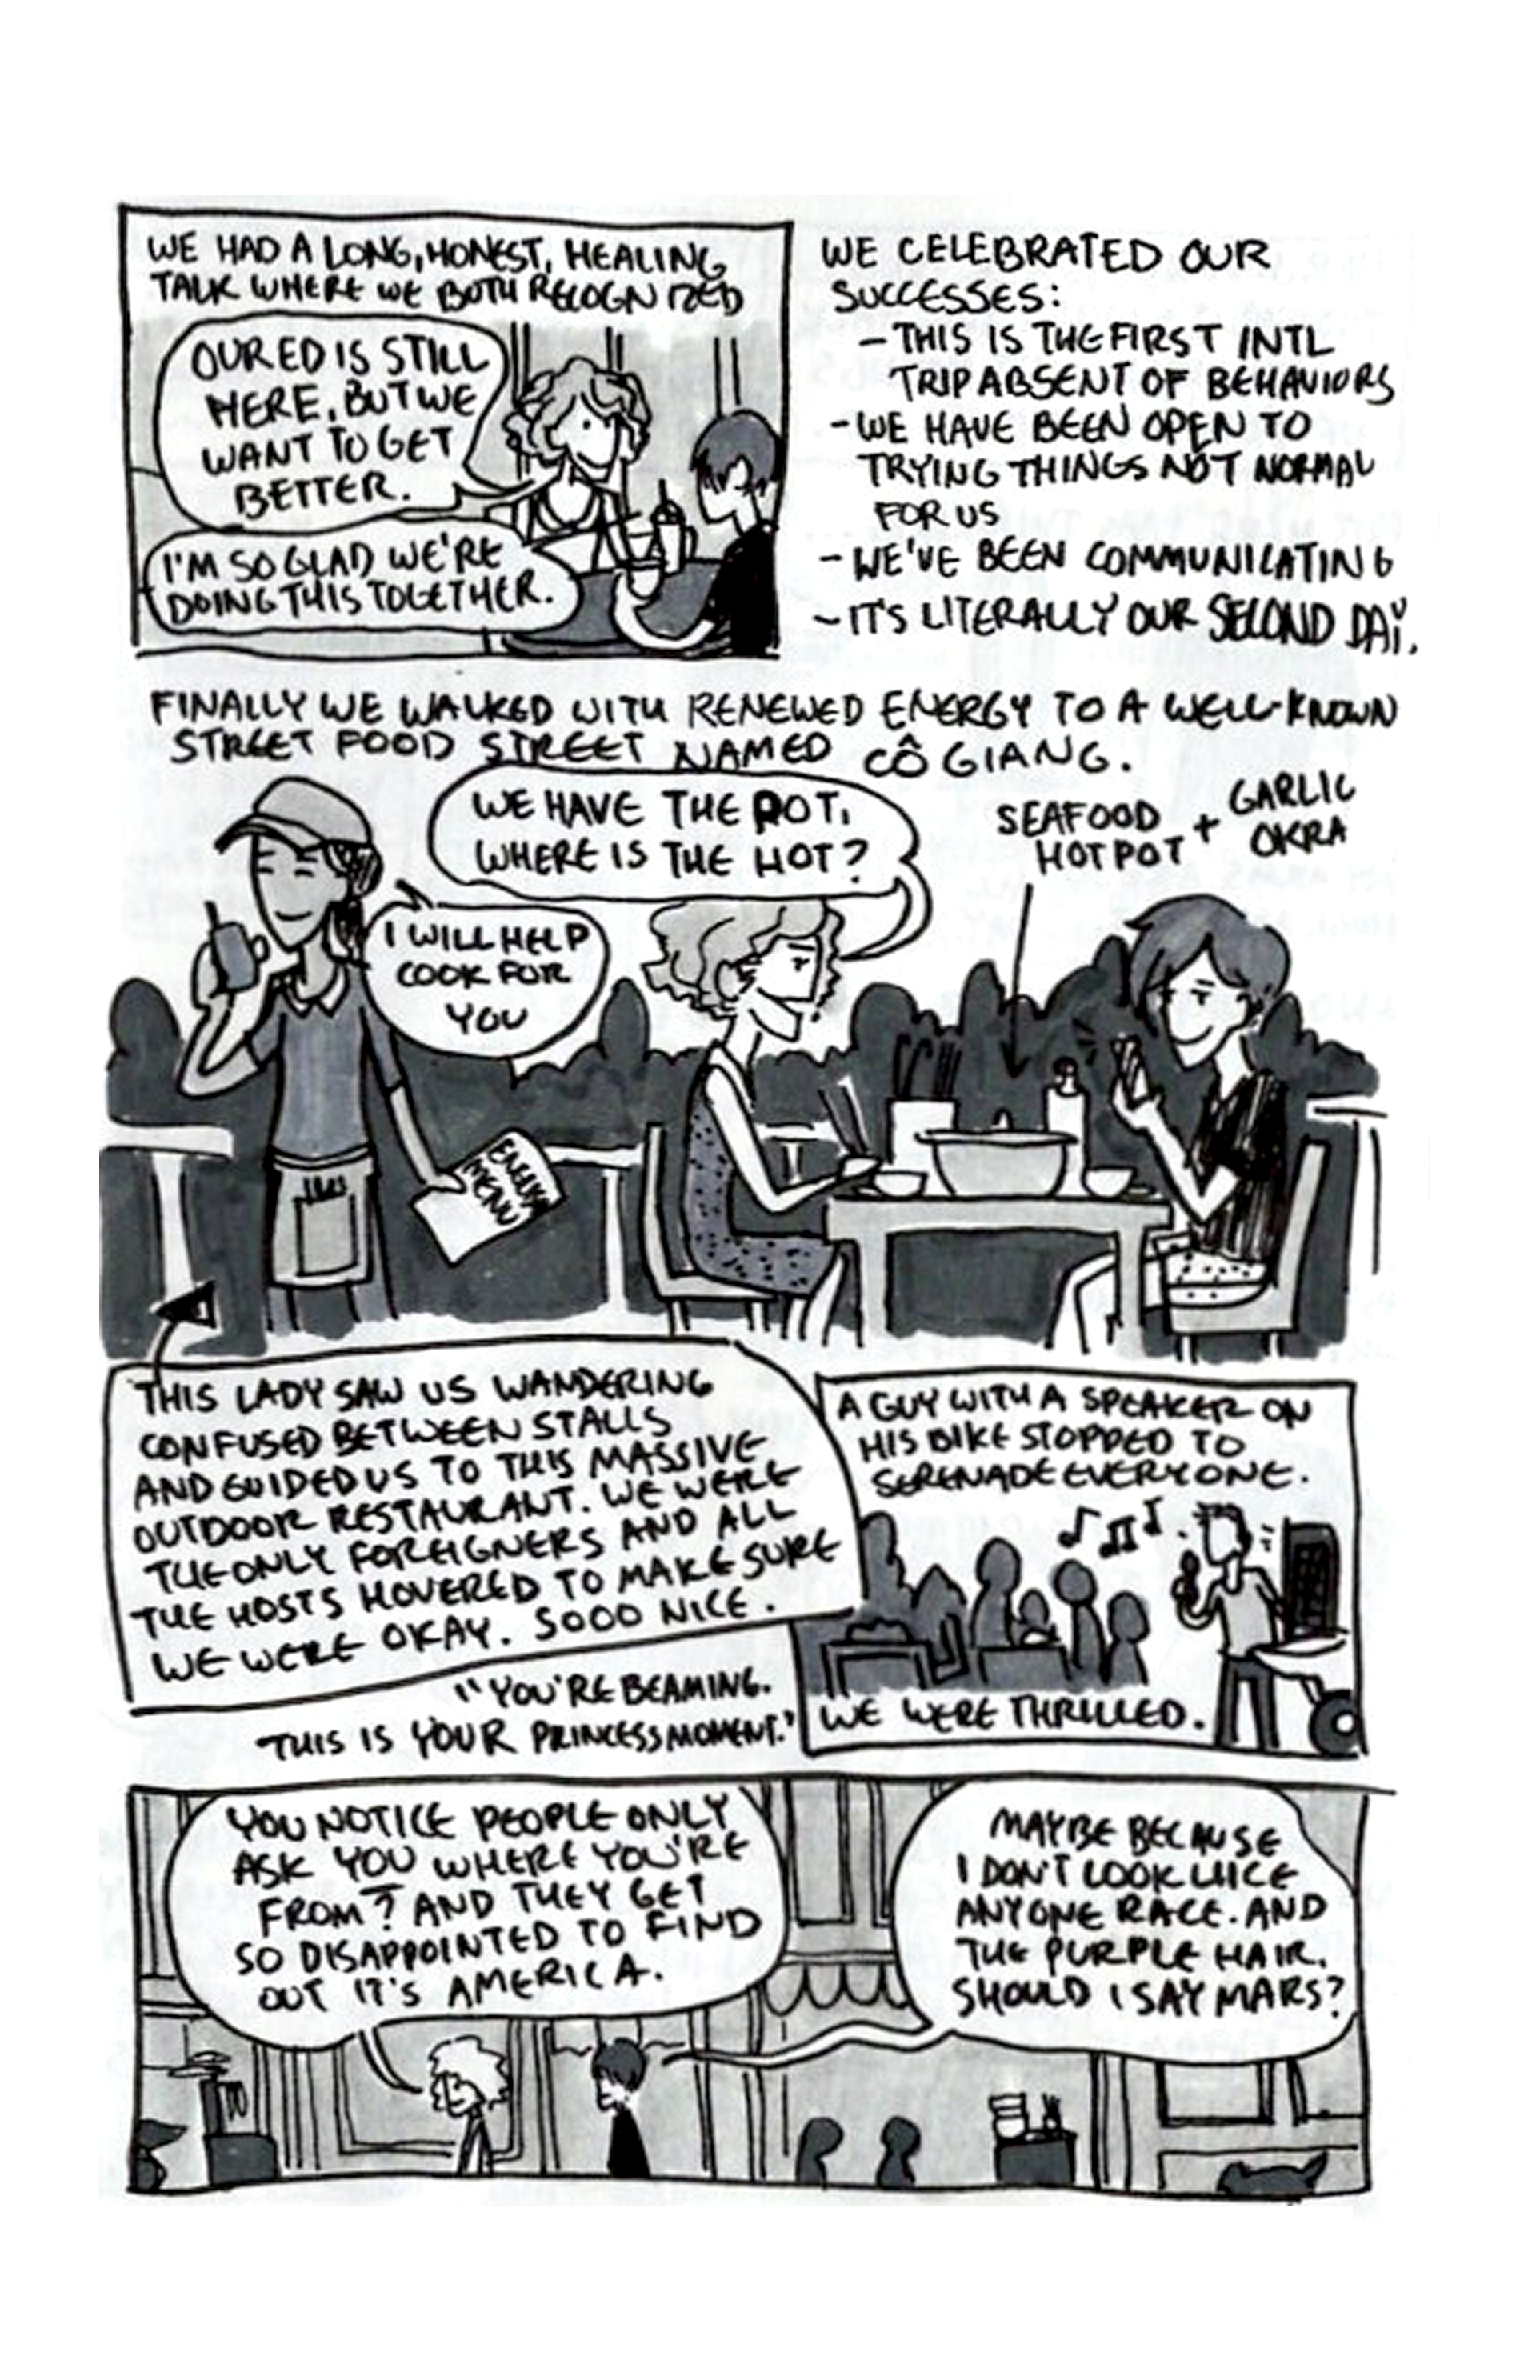 WE HAD A LONG, HONEST, HEALING
TALK WHERE WE BOTH RECOGNIZED
OUR ED IS STILL
HERE, BUT WE
WANT TO GET
BETTER.
I'M SO GLAD WE'RE
DOING THIS TOGETHER.
WE CELEBRATED OUR
SUCCESSES:
- THIS IS THE FIRST INTL
TRIP ABSENT OF BEHAVIORS
- WE HAVE BEEN OPEN TO
TRYING THINGS NOT NORMAL
FOR US
- WE'VE BEEN COMMUNICATING
- IT'S LITERALLY OUR SECOND DAY.
FINALLY WE WALKED WITH RENEWED ENERGY TO A WELL-KNOWN
STREET FOOD STREET NAMED CÔ GIANG.
WE HAVE THE POT,
WHERE IS THE HOT?
SEAFOOD
HOTPOT
+ GARLIC
OKRA
I WILL HELP
COOK FOR
YOU
MENU
THIS LADY SAW US WANDERING
CONFUSED BETWEEN STALLS
AND GUIDED US TO THIS MASSIVE
OUTDOOR RESTAURANT. WE WERE
THE ONLY FOREIGNERS AND ALL
THE HOSTS HOVERED TO MAKE SURE
WE WERE OKAY. SOOO NICE.
A GUY WITH A SPEAKER ON
HIS BIKE STOPPED TO
SERENADE EVERYONE.
WE WERE THRILLED.
"YOU'RE BEAMING.
THIS IS YOUR PRINCESS MOMENT."
YOU NOTICE PEOPLE ONLY
ASK YOU WHERE YOU'RE
FROM? AND THEY GET
SO DISAPPOINTED TO FIND
OUT IT'S AMERICA.
MAYBE BECAUSE
I DON'T LOOK LIKE
ANYONE RACE. AND
THE PURPLE HAIR.
SHOULD I SAY MARS?